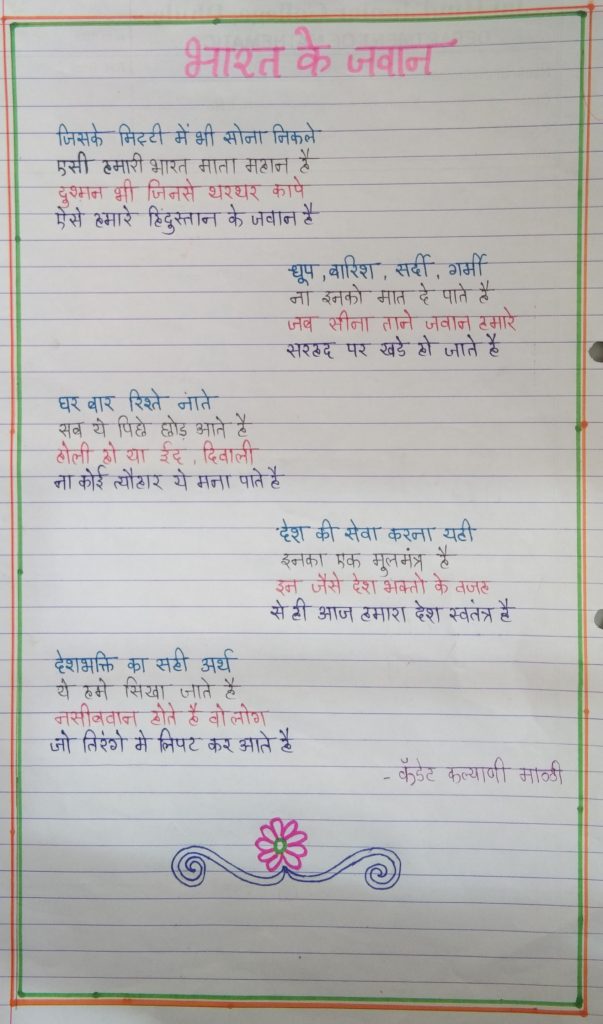 भारत के जवान
जिसके मिट्टी में भी सोना निकले
एसी हमारी भारत माता महान है
दुश्मन भी जिनसे थरथर कापे
ऐसे हमारे हिंदुस्तान के जवान है
धूप , बारिश , सर्दी , गर्मी
ना इनको मात दे पाते है
जब सीना ताने जवान हमारे
सरहद पर खडे हो जाते है
घर बार रिश्ते नाते
सब ये पिछे छोड़ आते है
होली हो या ईद , दिवाली
ना कोई त्यौहार ये मना पाते है
देश की सेवा करना यही
इनका एक मुलमंत्र है
इन जैसे देश भक्तो के वजह
से ही आज हमारा देश स्वतंत्र है
देशभक्ति का सही अर्थ
ये हमे सिखा जाते है
नसीबवान होते है वो लोग
जो तिरंगे मे लिपट कर आते है
- कॅडेट कल्याणी माळी